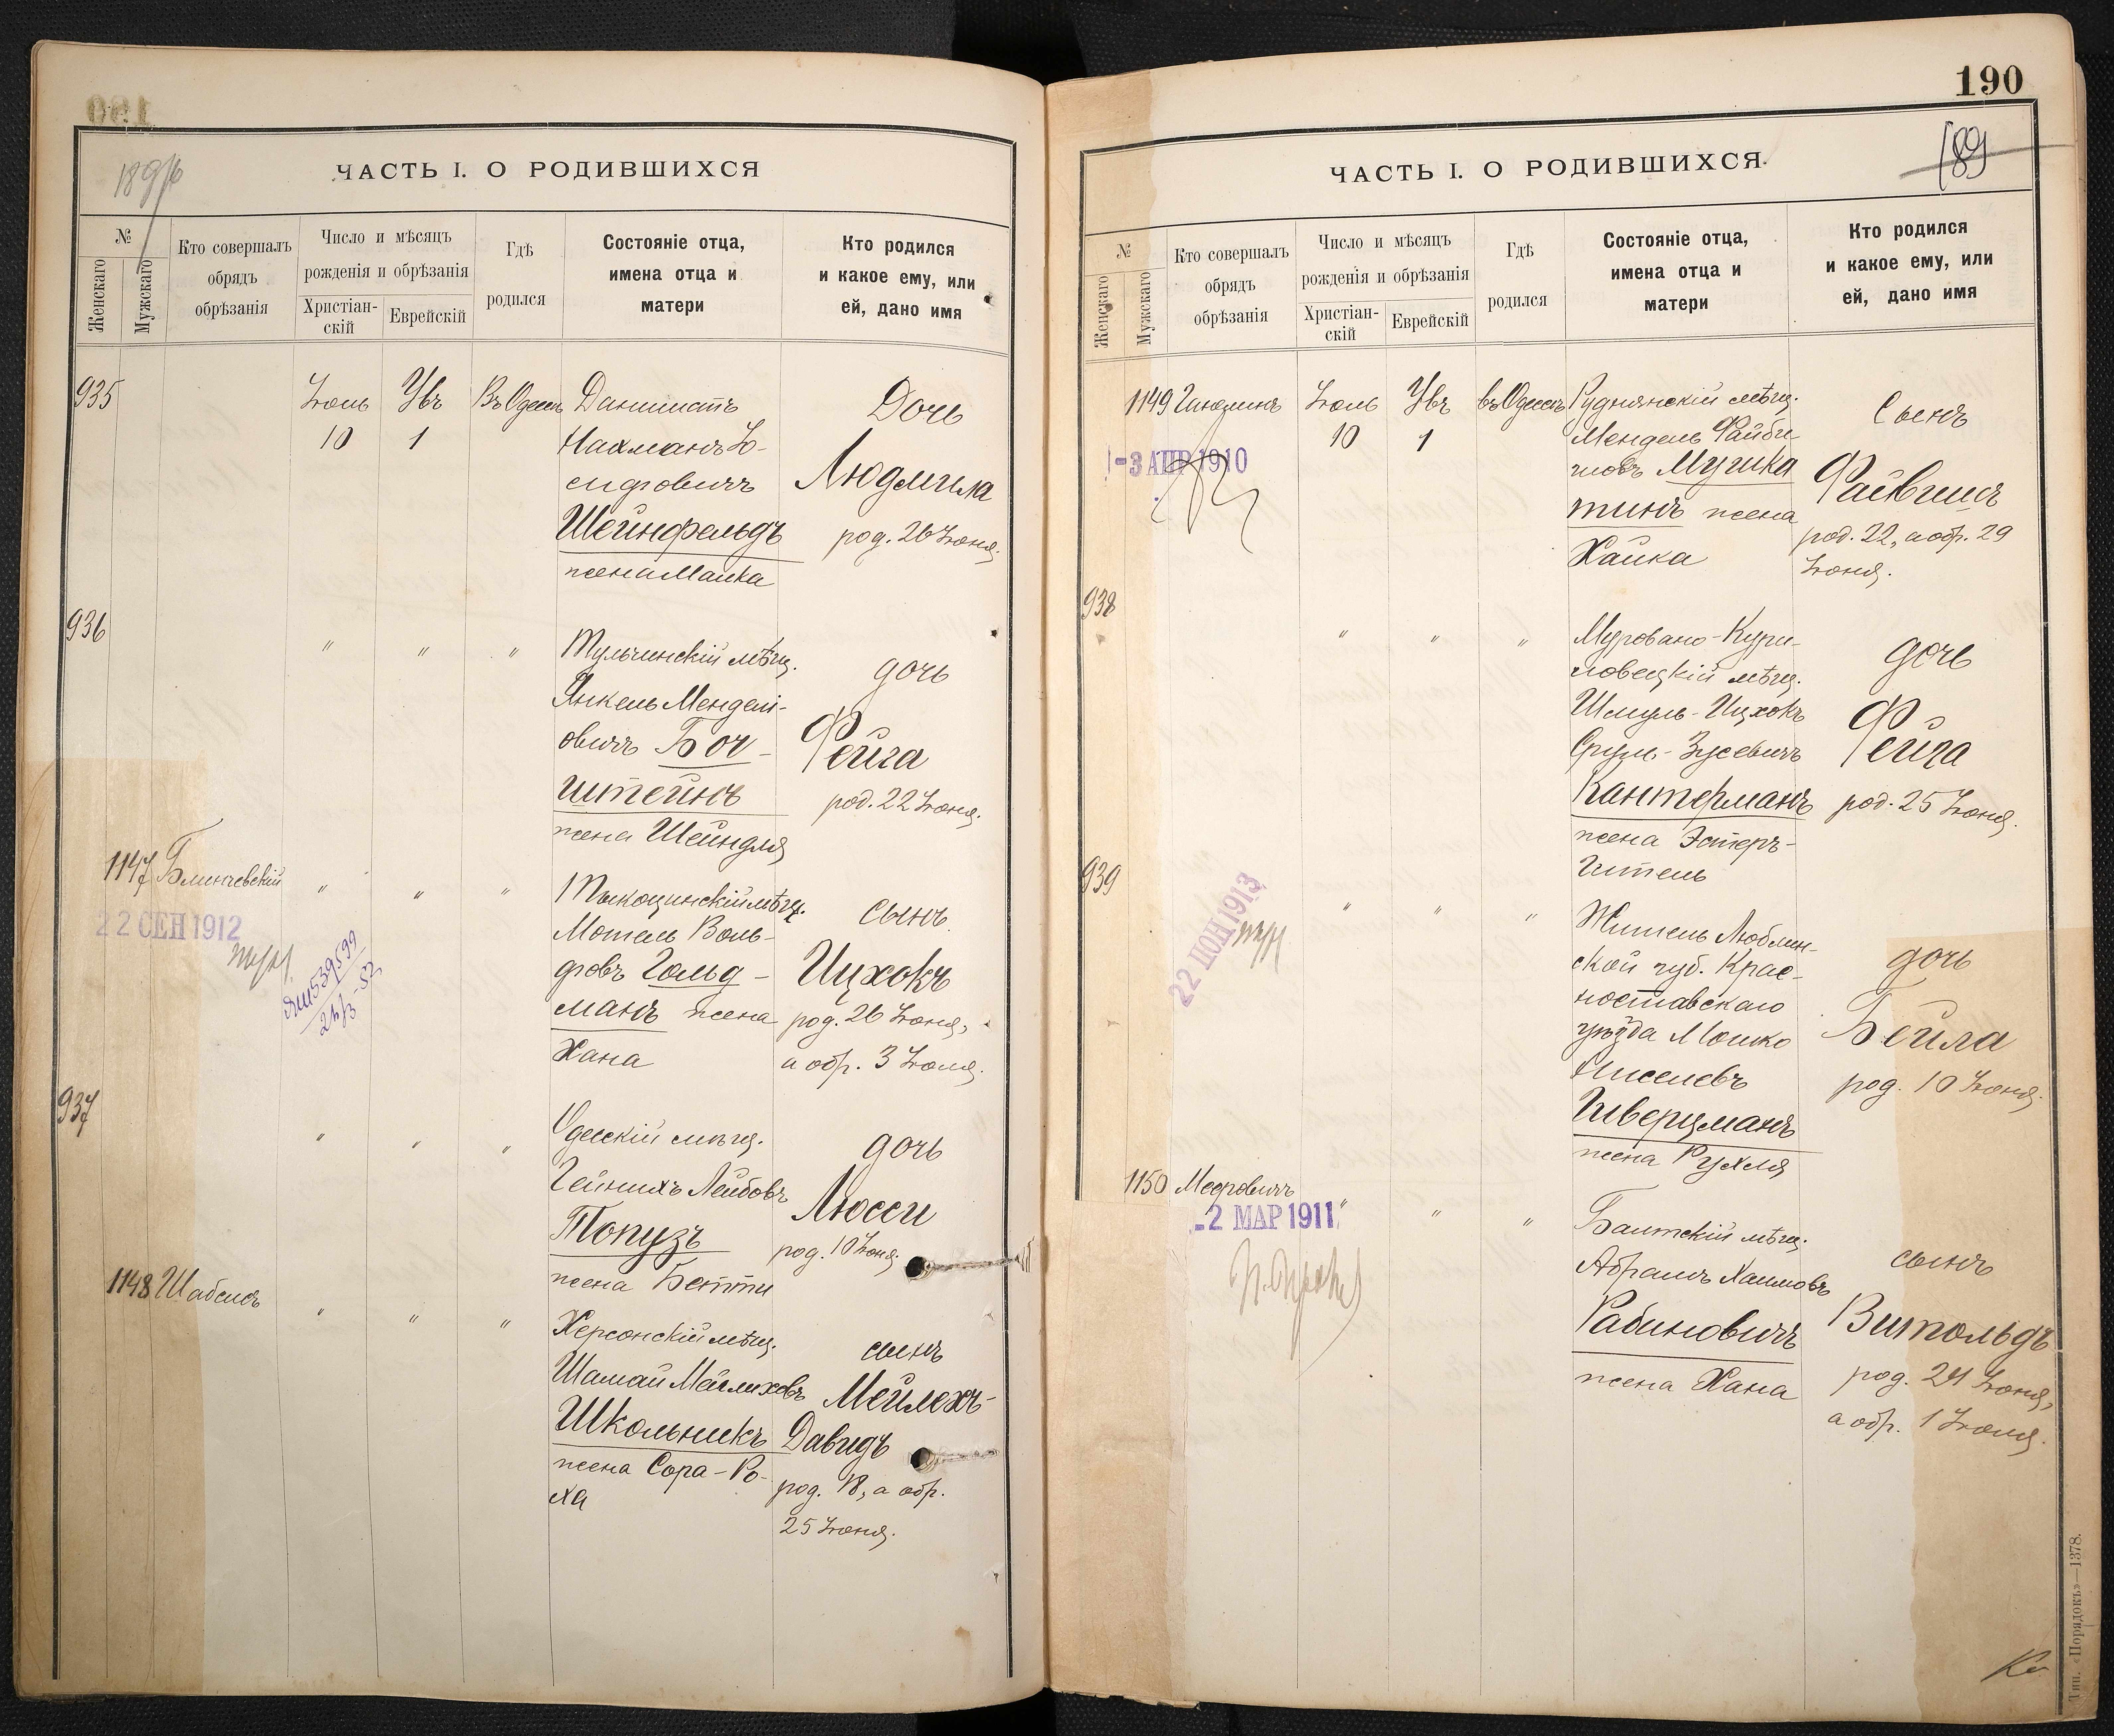 190
1896
ЧАСТЬ I. О РОДИВШИХСЯ
№
Женскаго
Мужскаго
Кто совершалъ
обрядъ
обрѣзанія
Число и мѣсяцъ
рожденія и обрѣзанія
Христіан-
скій
Еврейскій
Гдѣ
родился
Состояніе отца,
имена отца и
матери
Кто родился
и какое ему, или
ей, дано имя
935
Іюль
10
1
Въ Одессѣ
Дантистъ
Нахманъ Іо-
сифовичъ
Шейнфельдъ
жена Малка
Дочь
Людмила
род. 26 Іюня.
936
" " "
Тульчинскій мѣщ.
Янкель Мендел-
овичъ Бочь-
штейнъ
жена Шейндля
дочь
Фейга
род. 22 Іюня.
1147
Блинчевскій
22 СЕН 1912
" " "
Тыкоцинскій мѣщ.
Мотель Воль-
фовъ Гольд-
манъ жена
Хана
сынъ
Ицхокъ
род. 26 Іюня,
а обр. 3 Іюля.
937
" " "
Одесскій мѣщ.
Гейнихъ Лейбовъ
Топузъ
жена Бетти
дочь
Люсси
род. 10 Іюня.
1148
Шабсисъ
" " "
Херсонскій мѣщ.
Шамай Мейлиховъ
Школьникъ
жена Сора-Ро-
ха
сынъ
Мейлехъ-
Давидъ
род. 18, а обр.
25 Іюня.
190
189
ЧАСТЬ I. О РОДИВШИХСЯ.
№
Женскаго
Мужскаго
Кто совершалъ
обрядъ
обрѣзанія
Число и мѣсяцъ
рожденія и обрѣзанія
Христіан-
скій
Еврейскій
Гдѣ
родился
Состояніе отца,
имена отца и
матери
Кто родился
и какое ему, или
ей, дано имя
1149
-3 АПР 1910
Іюль
10
1
въ Одессѣ
Руднянскій мѣщ.
Мендель Файби-
шовъ Мушка
тинъ жена
Хайка
Сынъ
Файвишъ
род. 22, а обр. 29
Іюня.
938
" " "
Муровано-Кури-
ловецкій мѣщ.
Шмуль-Ицхокъ
Сруль-Зусевичъ
Кантерманъ
жена Эстеръ-
Гитель
дочь
Фейга
род. 25 Іюня.
939
22 ІЮН 1913
" " "
Житель Люблин-
ской губ. Крас-
ноставскаго
уѣзда Мошко
Ниселевъ
Шверцманъ
жена Рухля
дочь
Бейла
род. 10 Іюня.
1150
Мееровичъ
-2 МАР 1911
" " "
Балтскій мѣщ.
Абрамъ Хаимовъ
Рабиновичъ
жена Хана
сынъ
Витольдъ
род. 24 Іюня,
а обр. 1 Іюля.
Тип. «Порядокъ»—1378.